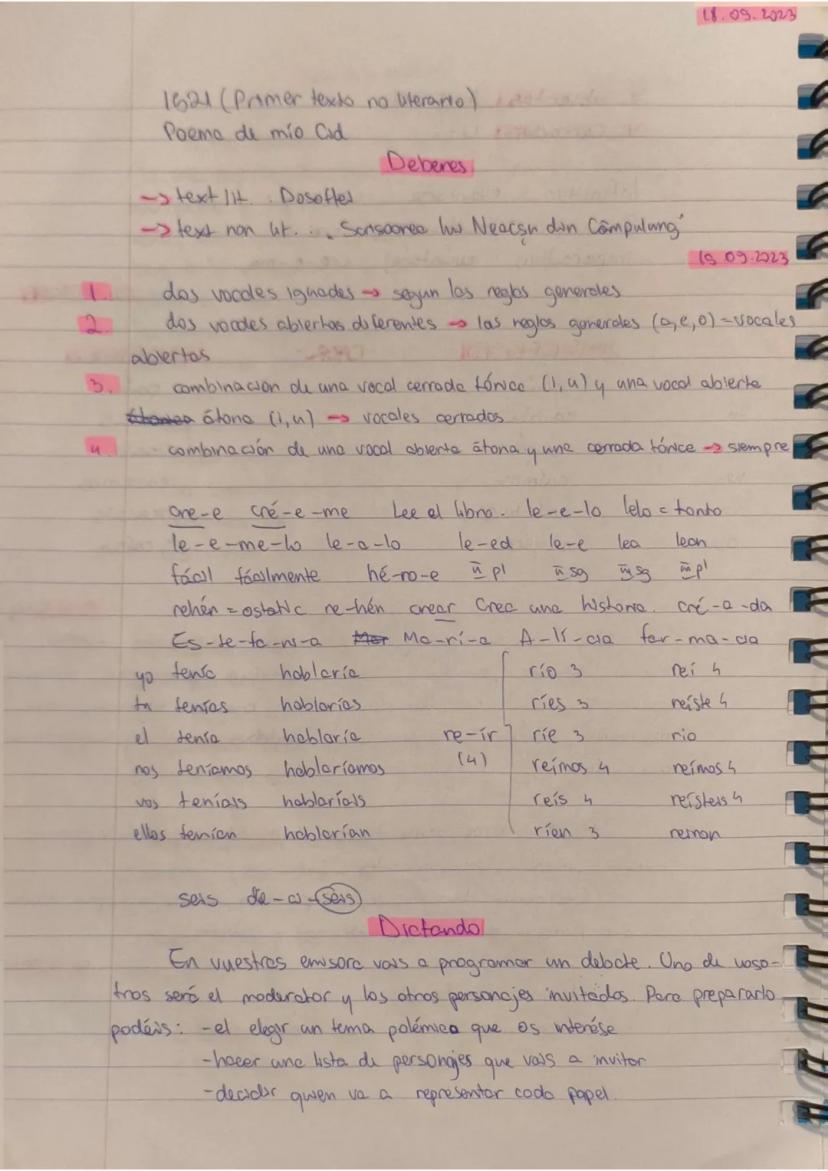 18.09.2023
1521 (Primer texto no literario)
Poema de mío Cid
Deberes
→ text lit. Dosoftei
→ text non lit. ... Scrisoarea lui Neacșu din Câmpulung
19.09.2023
1. dos vocales iguales → segun las reglas generales
2. dos vocales abiertas diferentes → las reglas generales (a,e,o) = vocales
abiertas
3. combinacion de una vocal cerrada tónica (i,u) y una vocal abierta
átona (i,u) → vocales cerradas
4. combinación de una vocal abierta átona y una cerrada tónica → siempre
cre-e cré-e-me Lee el libro. le-e-lo lelo = tonto
le-e-me-lo le-a-lo le-ed le-e lea lean
fácil fácilmente hé-ro-e II pl II sg III sg III pl
rehén = ostatic re-hén crear Crea una historia. cré-a-da
Es-te-fa-ní-a Ma-rí-a A-li-cia far-ma-cia
yo tenía hablaría río 3 reí 4
tu tenías hablarías ríes 3 reíste 4
el tenía hablaría re-ír ríe 3 rio
nos teníamos hablaríamos (4) reímos 4 reímos 4
vos teníais hablaríais reís 4 reísteis 4
ellos tenían hablarían ríen 3 rieron
seis de-ci-séis
Dictando
En vuestras emisora vais a programar un debate. Uno de voso-
tros será el moderator y los otros personajes invitados. Para prepararlo
podéis: -el elegir un tema polémico que os interése
-hacer una lista de personajes que vais a invitar
-decidir quien va a representar cada papel.